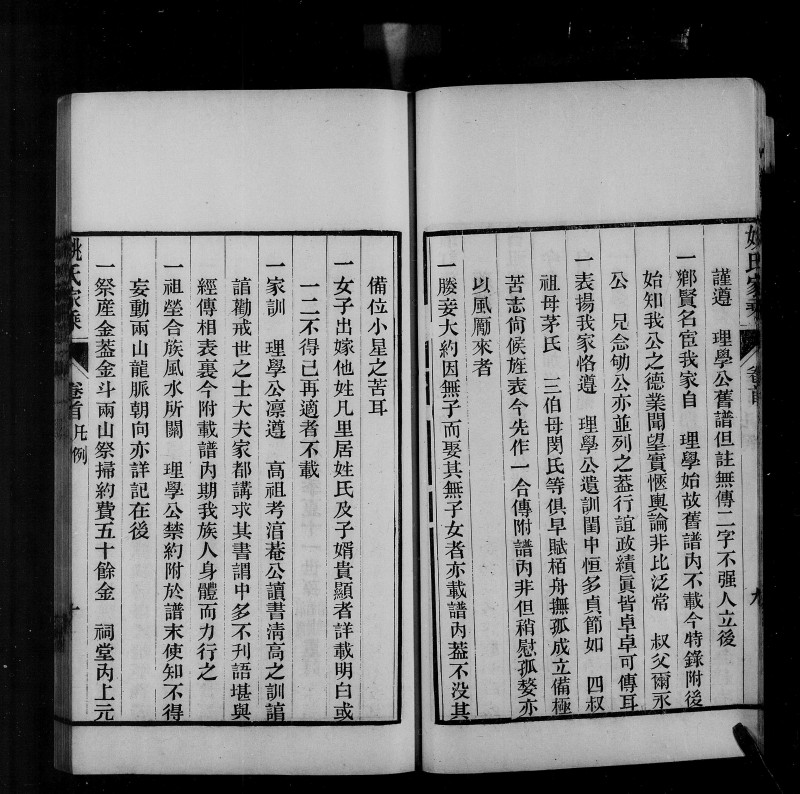 謹遵　理學公舊譜但註無傳二字不强人立後
一鄉賢名宦我家自　理學始故舊譜內不載今特錄附後
始知我公之德業聞望實愜輿論非比泛常　叔父爾丞
公　兄念劬公亦並列之葢行誼政績眞皆卓卓可傳耳
一表揚我家恪遵　理學公遺訓閨中恒多貞節如　四叔
祖母茅氏　三伯母閔氏等俱早賦栢舟撫孤成立備極
苦志尙候旌表今先作一合傳附譜內非但稍慰孤嫠亦
以風勵來者
一媵妾大約因無子而娶其無子女者亦載譜內葢不没其
備位小星之苦耳
一女子出嫁他姓凡里居姓氏及子婿貴顯者詳載明白或
一二不得已再適者不載
一家訓　理學公凛遵　高祖考涫菴公讀書淸高之訓誼
誼勸戒世之士大夫家都講求其書謂中多不刊語堪與
經傳相表裏今附載譜內期我族人身體而力行之
一祖塋合族風水所關　理學公禁約附於譜末使知不得
妄動兩山龍脈朝向亦詳記在後
一祭産金葢金斗兩山祭掃約費五十餘金　祠堂內上元
姚氏家乘
卷首
凡例
十